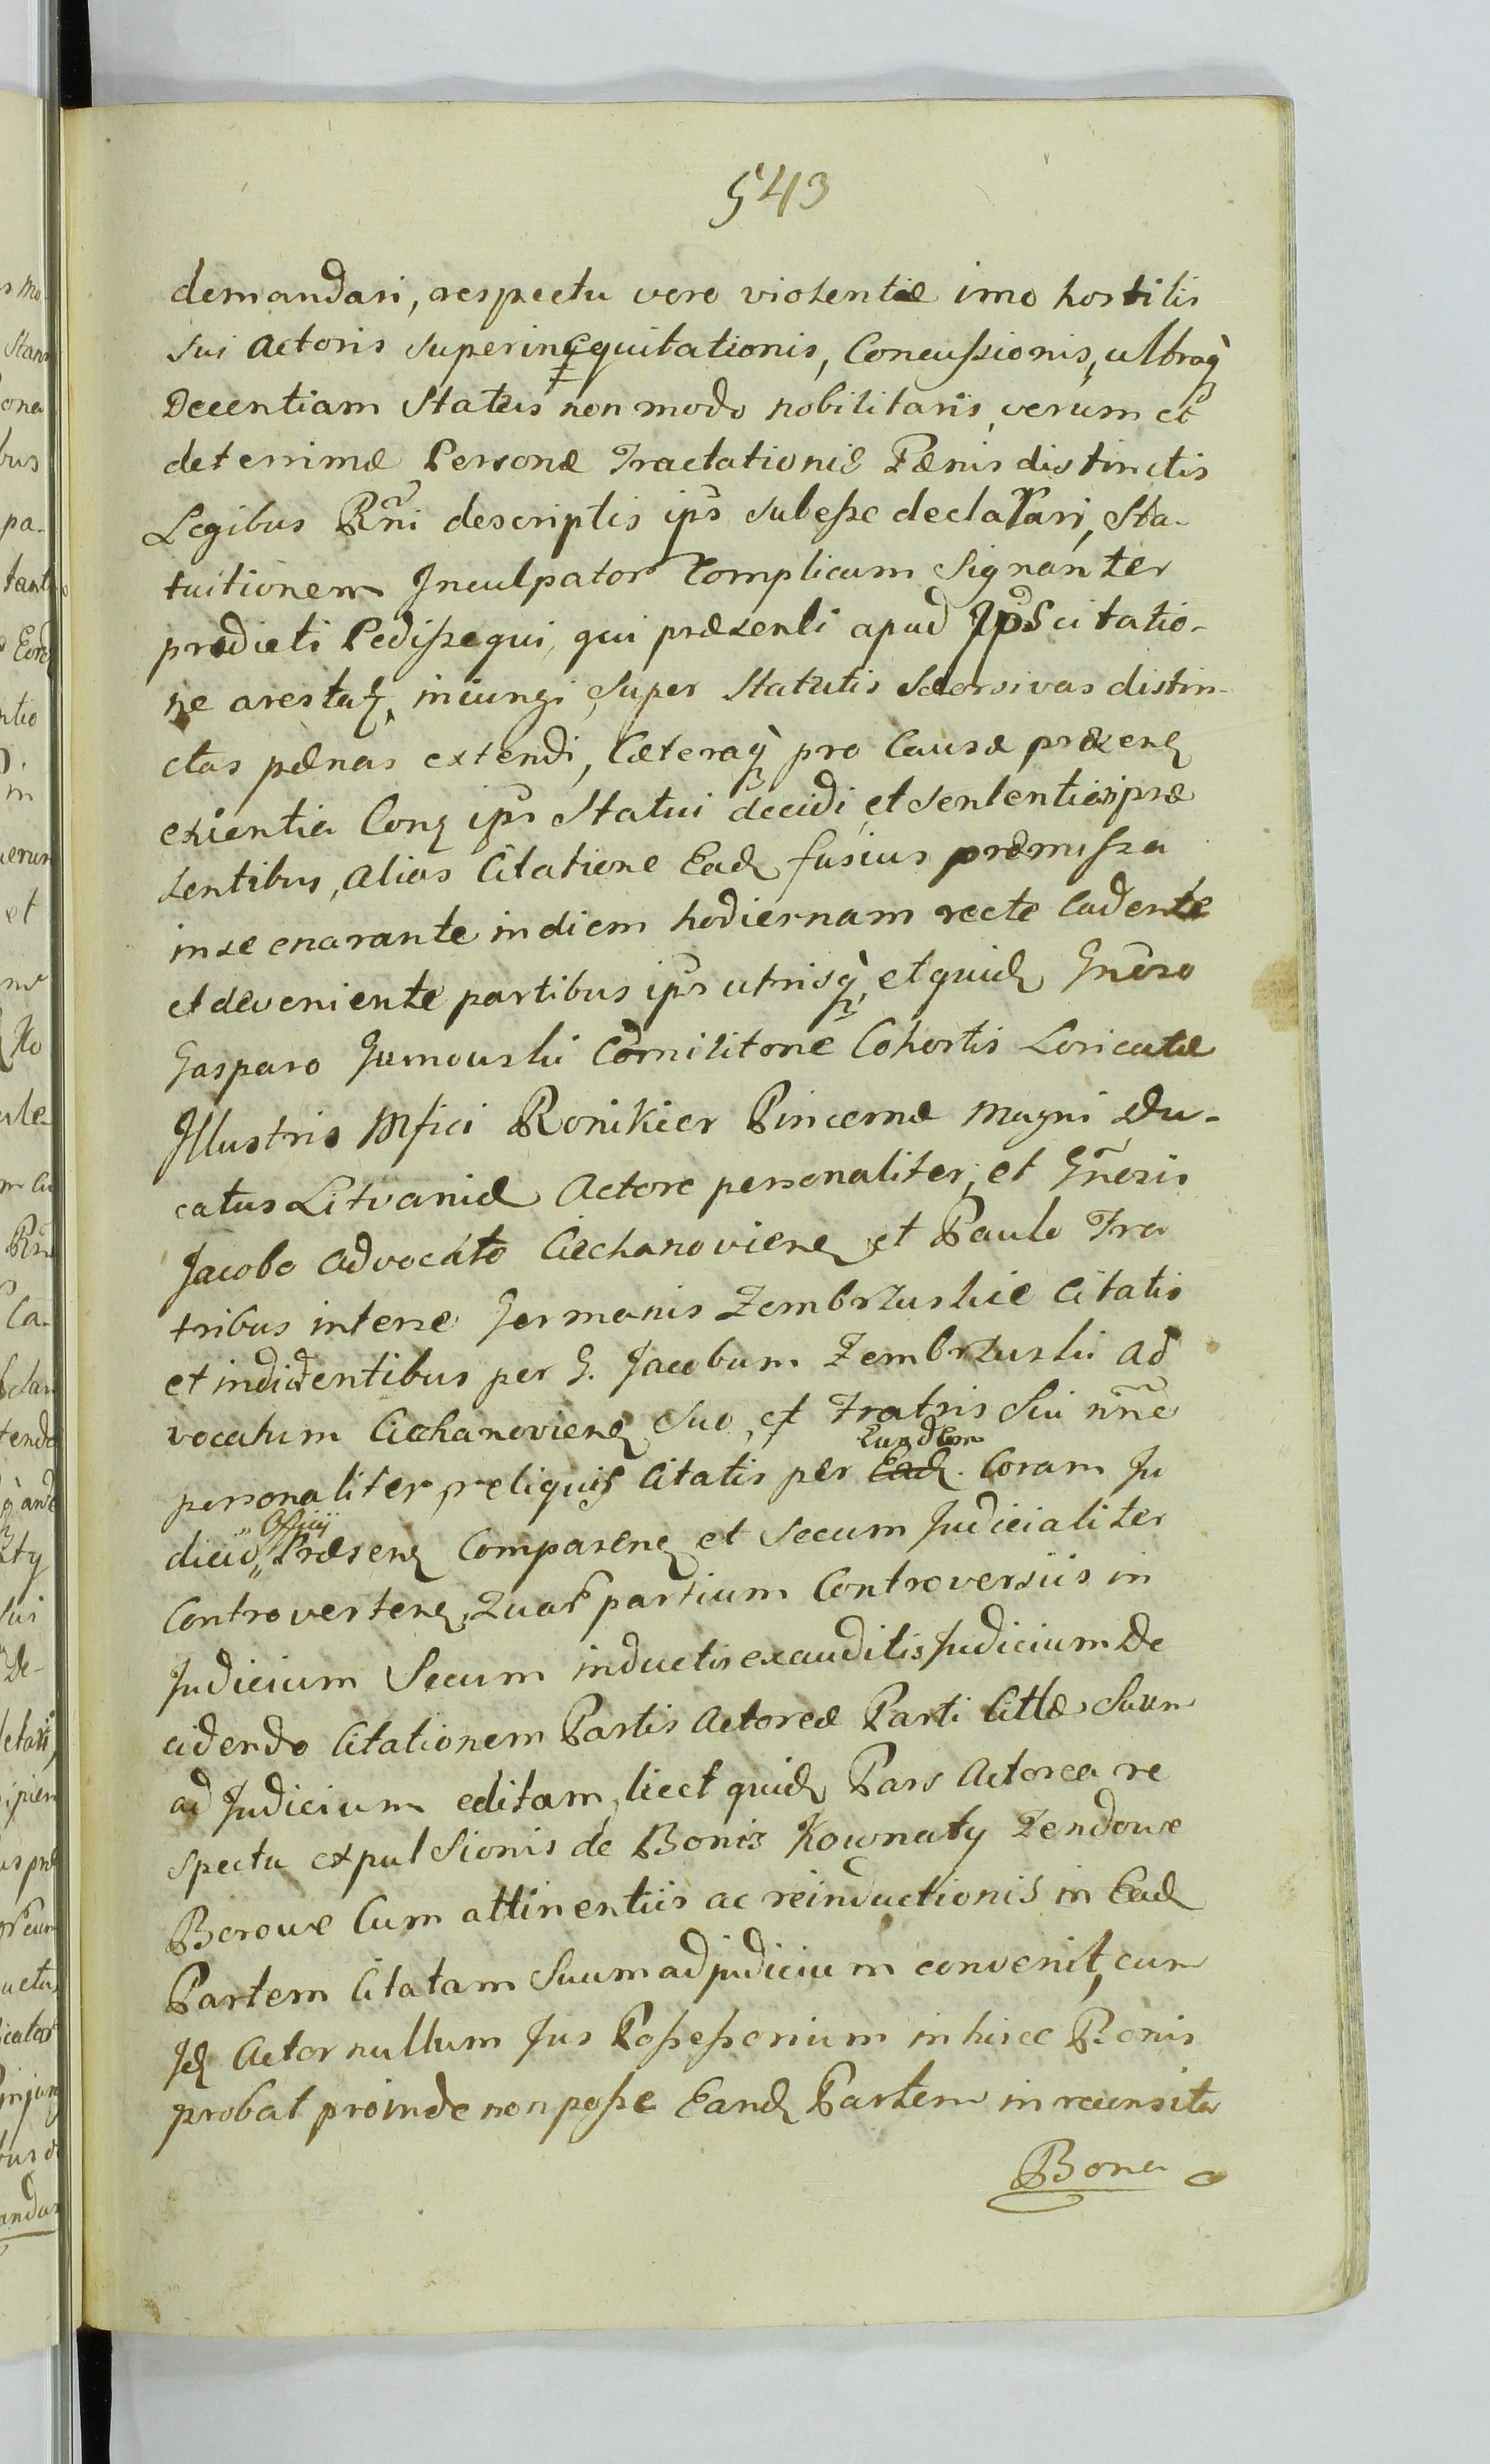 543
demandari, respectu vero violentiæ imo hostilis
sui Actoris superinequitationis, Concussionis, ultraq̀
Decentiam Status non modo nobilitaris, verum et
deterrimæ Personæ Tractationis Pænis distinctis
Legibus Rñi descriptis ips subesse declarari, Sta-
tuitionem Inculpator Complicum Signanter
prædicti Pedissequi, qui præsenti apud Citatio-
ne arestatȝ, iniungi, super Statutis Seorsivas distin-
ctas pænas extendi, Cæteraq̀ pro Causæ præsenȝ
exientia Conȝ ips Statui decidi et sententiari præ
sentibus, Alias Citatione Eadȝ fusius præmissa
in se enarante in diem hodiernam recte Cadente
et deveniente partibus ips utrisq̀, et quidȝ Gneroso
Gasparo Jumouski Comilitone Cohortis Loricatæ
Illustris Mfici Ronikier Pincernæ Magni Du-
catus Litvaniæ Actore personaliter, et Gñosis
Jacobo Advocato Ciechanovienȝ et Paulo Fra
tribus interse Germanis Zembrzuskie Citatis
et incidentibus per G. Jacobum Zembrzuski Ad
vocatum Ciechanovienȝ Suo, et Fratris Sui nñe
Eundem
personaliter, reliquis Citatis per Eadȝ. Coram Ju
" Officij
dicio " Præsenȝ Comparenȝ et Secum Judicialiter
Controvertenȝ, Quar partium Controversiis in
Judicium Secum inductis exauditis Judicium De
cidendo Citationem Partis Actoreæ Parti Cittæ Suum
ad Judicium editam, licet quidȝ Pars Actorea re
spectu expulsionis de Bonis Kownaty Zendowe
Borowe Cum attinentiis ac reinductionis in Eadȝ
Partem Citatam Suum ad judicium convenit, cum
Jdȝ Actor nullum Jus Possessorium in hisce Bonis
probat proinde non posse Eandȝ Partem in recensita
Bona